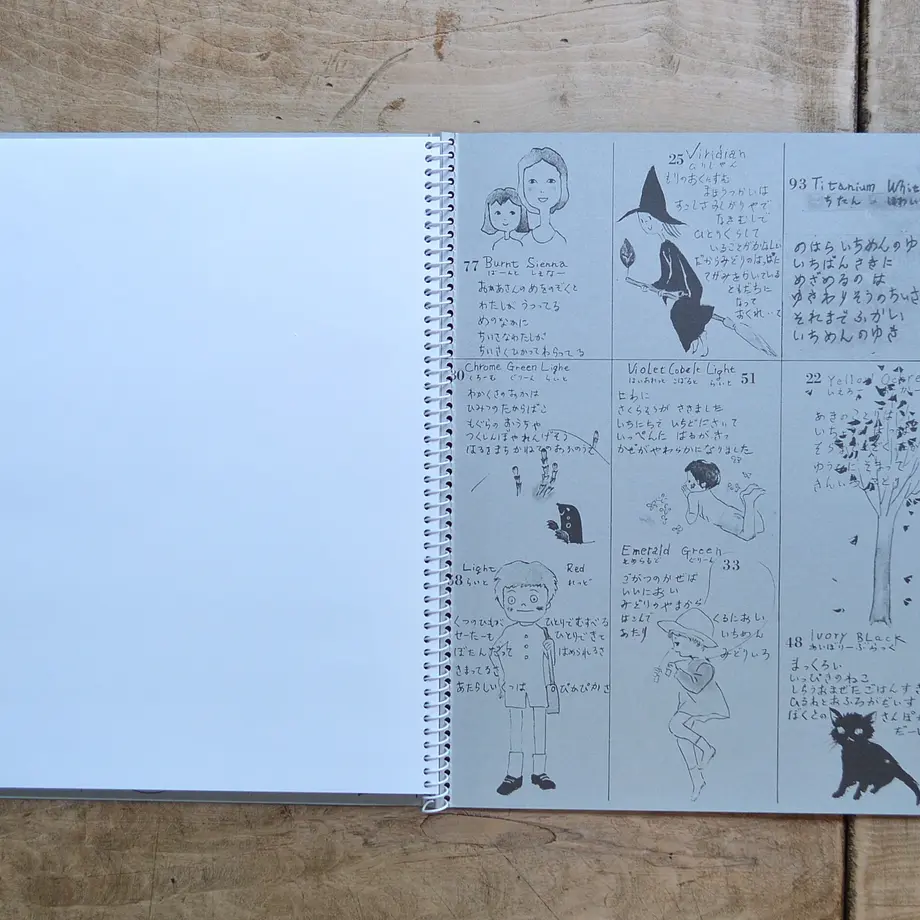 77 Burnt Sienna
ばーんと しえなー
おかあさんのめをのぞくと
わたしが うつってる
めのなかに
ちいさなわたしが
ちいさくひかってわらってる
25 Viridian
びりじゃん
もりのおくにすむ
まほうつかいは
すこしさみしがりやで
なきむしで
ひとりぐらして
いることがかなしい
だからみどりのはっぱに
てがみをかいている
ともだちに
なって
おくれ
93 Titanium
ちたん
のはら いちめんのゆ
いちばんさきに
めざめるの は
ゆきわりそうのちいさ
それまでふかい
いちめんのゆき
Chrome Green Light
くろーむ ぐりーん らいと
わかくさのおかは
ひみつのたからばこ
もぐらの おうちや
つくしんぼやれんげそう
はるをまちかねて
Violet Cobalt Light
ばいおれっと こばると らいと 51
とわに
さくらそうが さきました
いちにちで いちどにさいて
いっぺんに はるがきて
かぜがやわらかになりました
22 Yellow
いえろー
あきの
Light Red
らいと れっど
くつのひもが ひとりでむすべる
せーたーも ひとりできて
ぼたんだって はめられるさ
きまってるさ
あたらしい くつは ぴかぴかさ
Emerald Green
えめらるど ぐりーん
33
ごがつのかぜは
いいにおい
みどりのやまから
はこんで くるにおい
あたり いちめん
みどりいろ
48 Ivory Black
あいぼりーぶらっく
まっくろい
いっぴきのねこ
しらうおまぜたごはんすき
ひるねとおふろがだいす
ぼくとの さんぽ
だー